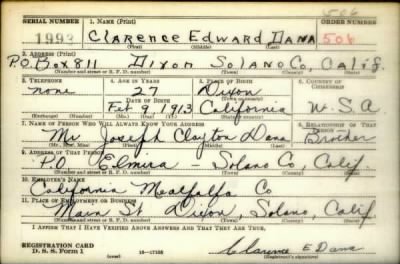 506
SERIAL NUMBER 1. NAME (Print) ORDER NUMBER
1993 CLARENCE EDWARD DANA 506
(First) (Middle) (Last)
2. ADDRESS (Print)
P.O. BOX 811 DIXON SOLANO CO, CALIF.
(Number and street or R. F. D. number) (Town) (County) (State)
3. TELEPHONE 4. AGE IN YEARS 5. PLACE OF BIRTH 6. COUNTRY OF CITIZENSHIP
none 27 Dixon
DATE OF BIRTH (Town or county)
Feb 9, 1913 California U.S.A
(Exchange) (Number) (Mo.) (Day) (Yr.) (State or country)
7. NAME OF PERSON WHO WILL ALWAYS KNOW YOUR ADDRESS 8. RELATIONSHIP OF THAT PERSON
Mr Joseph Clayton Dana Brother
(Mr., Mrs., Miss) (First) (Middle) (Last)
9. ADDRESS OF THAT PERSON
P.O. Elmira Solano Co, Calif.
(Number and street or R. F. D. number) (Town) (County) (State)
10. EMPLOYER'S NAME
California Mealfalfa Co
11. PLACE OF EMPLOYMENT OR BUSINESS
Main St Dixon, Solano, Calif
(Number and street or R. F. D. number) (Town) (County) (State)
I AFFIRM THAT I HAVE VERIFIED ABOVE ANSWERS AND THAT THEY ARE TRUE.
REGISTRATION CARD
D. S. S. Form 1 (over) Clarence E Dana
(Registrant's signature)